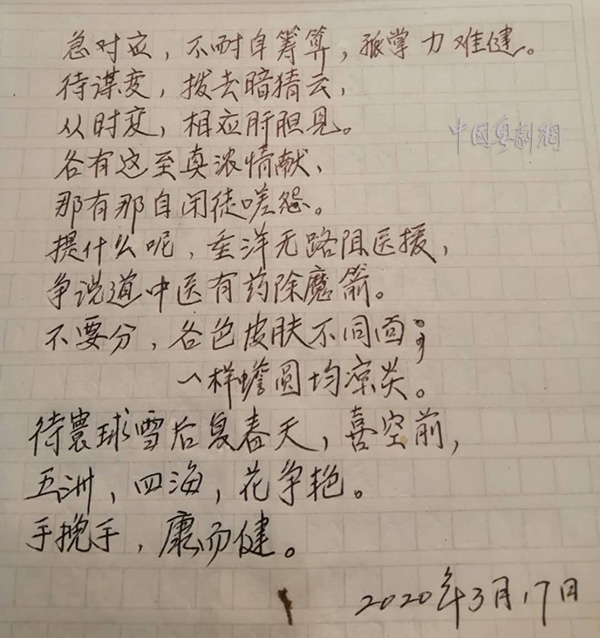 急对应，不耐自筹算，孤掌力难健。
待谋变，拨去暗猜云，
从时变，相应肝胆见。
中國粤劇網
各有这至真浓情献，
那有那自闭徒嗟怨。
提什么呢，重洋无路阻医援，
争说道中医有药除魔箭。
不要分，各色皮肤不同面；
一样蟾圆均凉炎。
待寰球雪后复春天，喜空前，
五洲，四海，花争艳。
手挽手，康而健。
2020年3月17日